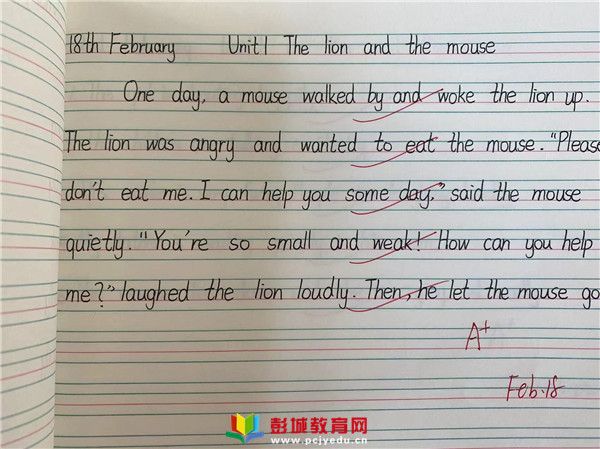 18th February Unit1 The lion and the mouse
One day, a mouse walked by and woke the lion up.
The lion was angry and wanted to eat the mouse. "Please
don't eat me. I can help you some day," said the mouse
quietly. "You're so small and weak! How can you help
me?" laughed the lion loudly. Then, he let the mouse go
A+
Feb.18
彭城教育网
www.pcjyedu.cn